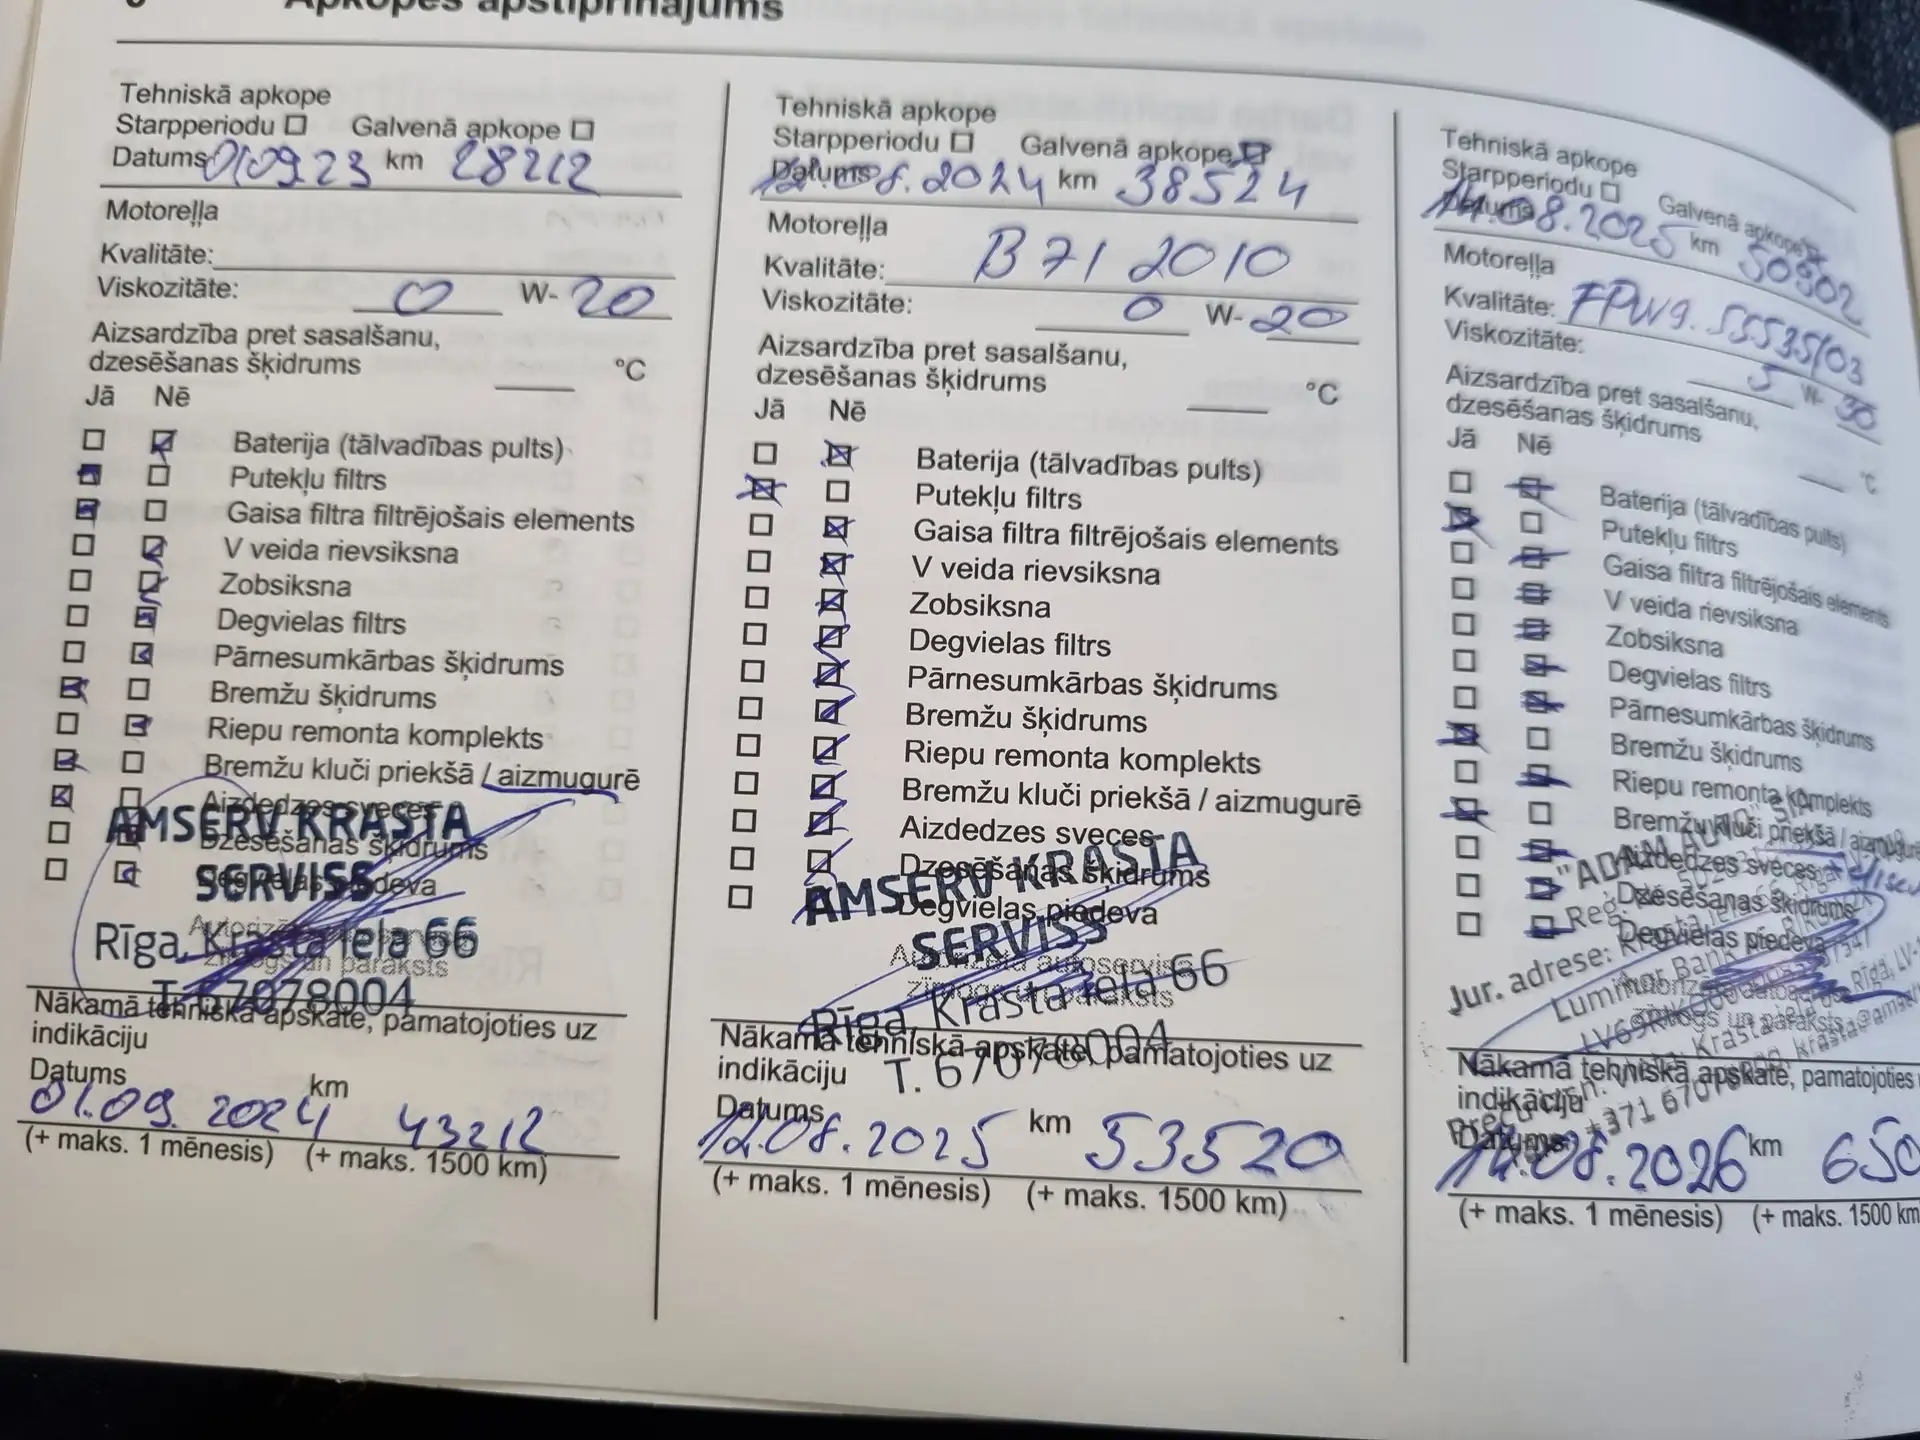 Apkopes apstiprinājums
Tehniskā apkope
Starpperiodu Galvenā apkope
Datums 01.09.23 km 28212
Motoreļļa
Kvalitāte:
Viskozitāte: 0 W- 20
Aizsardzība pret sasalšanu,
dzesēšanas šķidrums °C
Jā Nē
Baterija (tālvadības pults)
Putekļu filtrs
Gaisa filtra filtrējošais elements
V veida rievsiksna
Zobsiksna
Degvielas filtrs
Pārnesumkārbas šķidrums
Bremžu šķidrums
Riepu remonta komplekts
Bremžu kluči priekšā / aizmugurē
Aizdedzes sveces
Dzesēšanas šķidrums
Degvielas piedeva
AMSERV KRASTA
SERVISS
Rīga, Krasta iela 66
T. 67078004
zīmogs un paraksts
Nākamā tehniskā apskate, pamatojoties uz
indikāciju
Datums km
01.09.2024 43212
(+ maks. 1 mēnesis) (+ maks. 1500 km)
Tehniskā apkope
Starpperiodu Galvenā apkope
Datums 12.08.2024 km 38524
Motoreļļa
Kvalitāte: B71 2010
Viskozitāte: 0 W- 20
Aizsardzība pret sasalšanu,
dzesēšanas šķidrums °C
Jā Nē
Baterija (tālvadības pults)
Putekļu filtrs
Gaisa filtra filtrējošais elements
V veida rievsiksna
Zobsiksna
Degvielas filtrs
Pārnesumkārbas šķidrums
Bremžu šķidrums
Riepu remonta komplekts
Bremžu kluči priekšā / aizmugurē
Aizdedzes sveces
Dzesēšanas šķidrums
Degvielas piedeva
AMSERV KRASTA
SERVISS
Autorizētā autoservisa
zīmogs un paraksts
Rīga, Krasta iela 66
T. 67078004
Nākamā tehniskā apskate, pamatojoties uz
indikāciju
Datums km
12.08.2025 53520
(+ maks. 1 mēnesis) (+ maks. 1500 km)
Tehniskā apkope
Starpperiodu Galvenā apkope
Datums 14.08.2025 km 50502
Motoreļļa
Kvalitāte: FPW9.55535/03
Viskozitāte: 5 W- 30
Aizsardzība pret sasalšanu,
dzesēšanas šķidrums °C
Jā Nē
Baterija (tālvadības pults)
Putekļu filtrs
Gaisa filtra filtrējošais elements
V veida rievsiksna
Zobsiksna
Degvielas filtrs
Pārnesumkārbas šķidrums
Bremžu šķidrums
Riepu remonta komplekts
Bremžu kluči priekšā / aizmugurē
Aizdedzes sveces
Dzesēšanas šķidrums
Degvielas piedeva
Jur. adrese:
Luminor Bank
zīmogs un paraksts
Nākamā tehniskā apskate, pamatojoties
indikāciju
Datums km
14.08.2026 650
(+ maks. 1 mēnesis) (+ maks. 1500 km